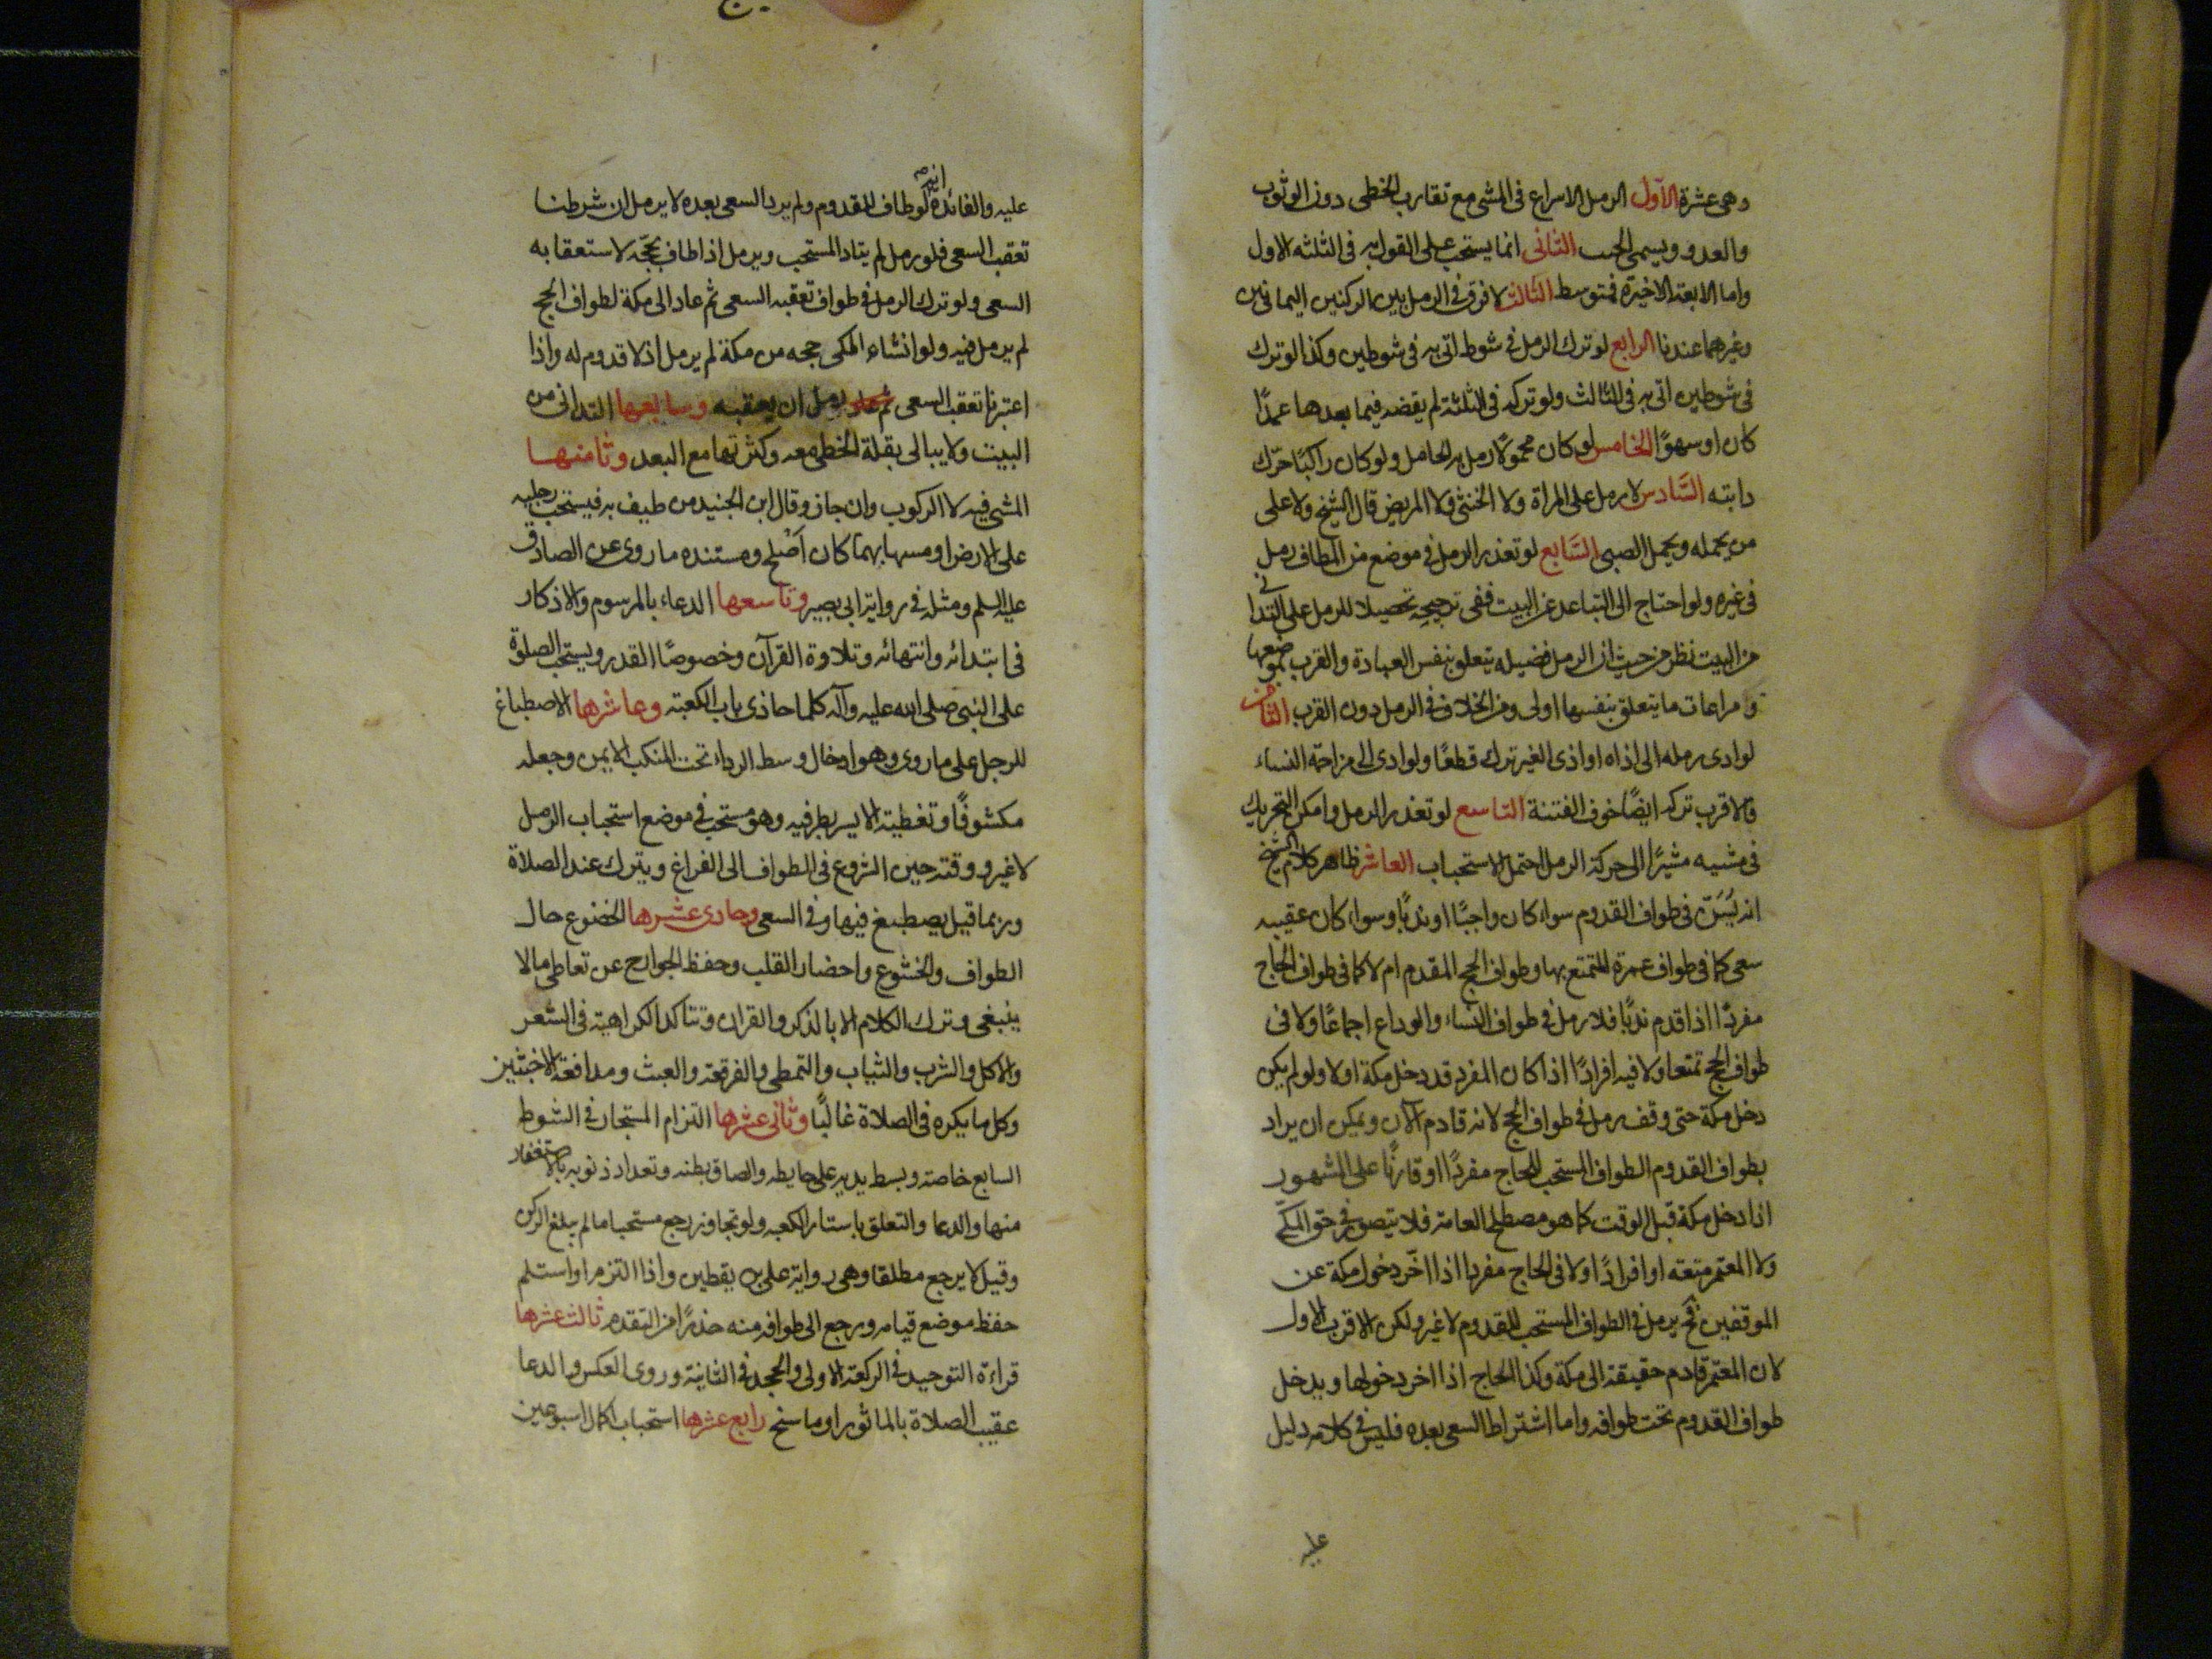 وهى عشرة الأول الرمل الاسراع فى المشى مع تقارب الخطى دون الوثوب
والعدو ويسمى الخبب الثانى انما يستحب على القول به فى الثلثه الاول
واما الابعة الاخيرة فمتوسط الثالث لا فرق فى الرمل بين الركنين اليمانيين
وغيرهما عندنا الرابع لو ترك الرمل فى شوط اتى به فى شوطين وكذا لو ترك
فى شوطين اتى به فى الثالث ولو تركه فى الثلثة لم يقضه فيما بعدها عمدًا
كان او سهوًا الخامس لو كان محمولًا رمل به الحامل ولو كان راكبًا حرّك
دابته السَّادس لا رمل على المراة ولا الخنثى ولا المريض قال الشيخ ولا على
من يحمله ويحمل الصبى السَّابع لو تعذر الرمل فى موضع من المطاف رمل
فى غيره ولو احتاج الى التباعد عن البيت ففى ترجيحه تحصيلا للرمل على التدانى
من البيت نظر من حيث ان الرمل فضيله يتعلق بنفس العبادة والقرب بموضعها
ومراعات ما يتعلق بنفسها اولى ومن الخلاف فى الرمل دون القرب الثامن
لو ادى رمله الى اذاه او اذى الغير ترك قطعًا ولو ادى الى مزاحمة النساء
فالاقرب تركه ايضًا خوف الفتنة التاسع لو تعذر الرمل وامكن التحريك
فى مشيه مشيرًا الى حركة الرمل احتمل الاستحباب العاشر ظاهر كلام الشيخ
انه يُسَنّ فى طواف القدوم سواء كان واجبًا او ندبًا وسواء كان عقيبه
سعى كما فى طواف عمرة المتمتع بها وطواف الحج المقدم ام لا كما فى طواف الحاج
مفردًا اذا قدم ندبًا فلا رمل فى طواف النساء والوداع اجماعًا ولا فى
طواف الحج تمتعا ولا فيه افرادًا اذا كان المفرد قد دخل مكة اولا ولو لم يكن
دخل مكة حتى وقف رمل فى طواف الحج لانه قادم الآن ويمكن ان يراد
بطواف القدوم الطواف المستحب للحاج مفردًا او قارنًا على المشهور
اذا دخل مكة قبل الوقت كما هو مصطلح العامة فلا يتصور فى حق المكّى
ولا المعتمر متعة او افرادًا ولا فى الحاج مفردا اذا اخّر دخول مكة عن
الموقفين فح يرمل فى الطواف المستحب للقدوم لا غير ولكن الاقرب الاول
لان المعتمر قادم حقيقة الى مكة وكذا الحاج اذا اخر دخولها ويدخل
طواف القدوم تحت طوافه واما اشتراط السعى بعده فليس فى كلامه دليل
عليه
عليه والفائدة انه لو طاف للقدوم ولم يرد السعى بعده لا يرمل ان شرطنا
تعقب السعى فلو رمل لم يتاد المستحب ويرمل اذا طاف بحجّه لاستعقابه
السعى ولو ترك الرمل فى طواف تعقبه السعى ثم عاد الى مكة لطواف الحج
لم يرمل فيه ولو انشاء المكى حجه من مكة لم يرمل اذ لا قدوم له واذا
اعتبرنا تعقب السعى رمل ان يعقبه وسابعها التدانى من
البيت ولا يبالى بقلة الخطى معه وكثرتها مع البعد وثامنها
المشى فيه لا الركوب وان جاز وقال ابن الجنيد من طيف به فيستحب رجليه
على الارض او مسها بهما كان اَصْلح ومستنده ما روى عن الصادق
عليه السلم ومثله فى رواية ابى بصير وتاسعها الدعاء بالمرسوم والاذكار
فى ابتدائه وانتهائه وتلاوة القرآن وخصوصًا القدر ويستحب الصلوة
على النبى صلى الله عليه وآله كلما حاذى باب الكعبة وعاشرها الاصطباغ
للرجل على ما روى وهو ادخال وسط الرداء تحت المنكب الايمن وجعله
مكشوفًا وتغطية الايسر بطرفيه وهو مستحب فى موضع استحباب الرمل
لا غير ووقته حين الشروع فى الطواف الى الفراغ ويترك عند الصلاة
وربما قيل يصطبغ فيها وفى السعى وحادى عشرها الخضوع حال
الطواف والخشوع واحضار القلب وحفظ الجوارح عن تعاطى مالا
ينبغى وترك الكلام الا بالذكر والقران وتتاكد الكراهية فى الشعر
والاكل والشرب والثياب والتمطى والفرقعة والعبث ومدافعة الاخبثين
وكل ما يكره فى الصلاة غالبًا وثانى عشرها التزام المستجار فى الشوط
السابع خاصة وبسط يديه على حايطه والصاق بطنه وتعداد ذنوبه بالاستغفار
منها والدعا والتعلق باستار الكعبه ولو تجاوز رجع مستحبا ما لم يبلغ الركن
وقيل لا يرجع مطلقا وهى رواية على بن يقطين واذا التزم او استلم
حفظ موضع قيامه ورجع الى طوافه منه حذرًا من التقدم ثالث عشرها
قراءة التوحيد فى الركعة الاولى والجحد فى الثانية وروى العكس والدعا
عقيب الصلاة بالماثور او ما سنح رابع عشرها استحباب اكمال اسبوعين